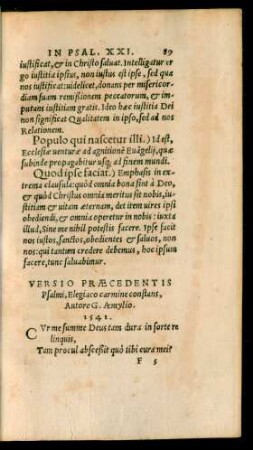 IN PSAL. XXI. 89
iustificat, & in Christo saluat. Intelligatur er
go iustitia ipsius, non iustus est ipse, sed qua
nos iustificat: uidelicet, donans per misericor
diam suam remissionem peccatorum, & im
putans iustitiam gratis. Ideo hæc iustitia Dei
non significat Qualitatem in ipso, sed ad nos
Relationem.
Populo qui nascetur illi.) Id est,
Ecclesiæ uenturæ ad agnitionē Euāgelij, quæ
subinde propagabitur usq; ad finem mundi.
Quod ipse faciat.) Emphasis in ex-
trema clausula: quòd omnia bona sint à Deo,
& quòd Christus omnia meritus sit nobis, iu-
stitiam & uitam æternam, det item uires ipsi
obediendi, & omnia operetur in nobis: iuxta
illud, Sine me nihil potestis facere. Ipse facit
nos iustos, sanctos, obedientes & saluos, non
nos: qui tantum credere debemus, hoc ipsum
facere, tunc saluabimur.
VERSIO PRÆCEDENTIS
Psalmi, Elegiaco carmine constans,
Autore G. Aemylio.
1541.
CVr me summe Deus tam dura in sorte re
linquis,
Tam procul abscessit quò tibi cura mei?
F 5